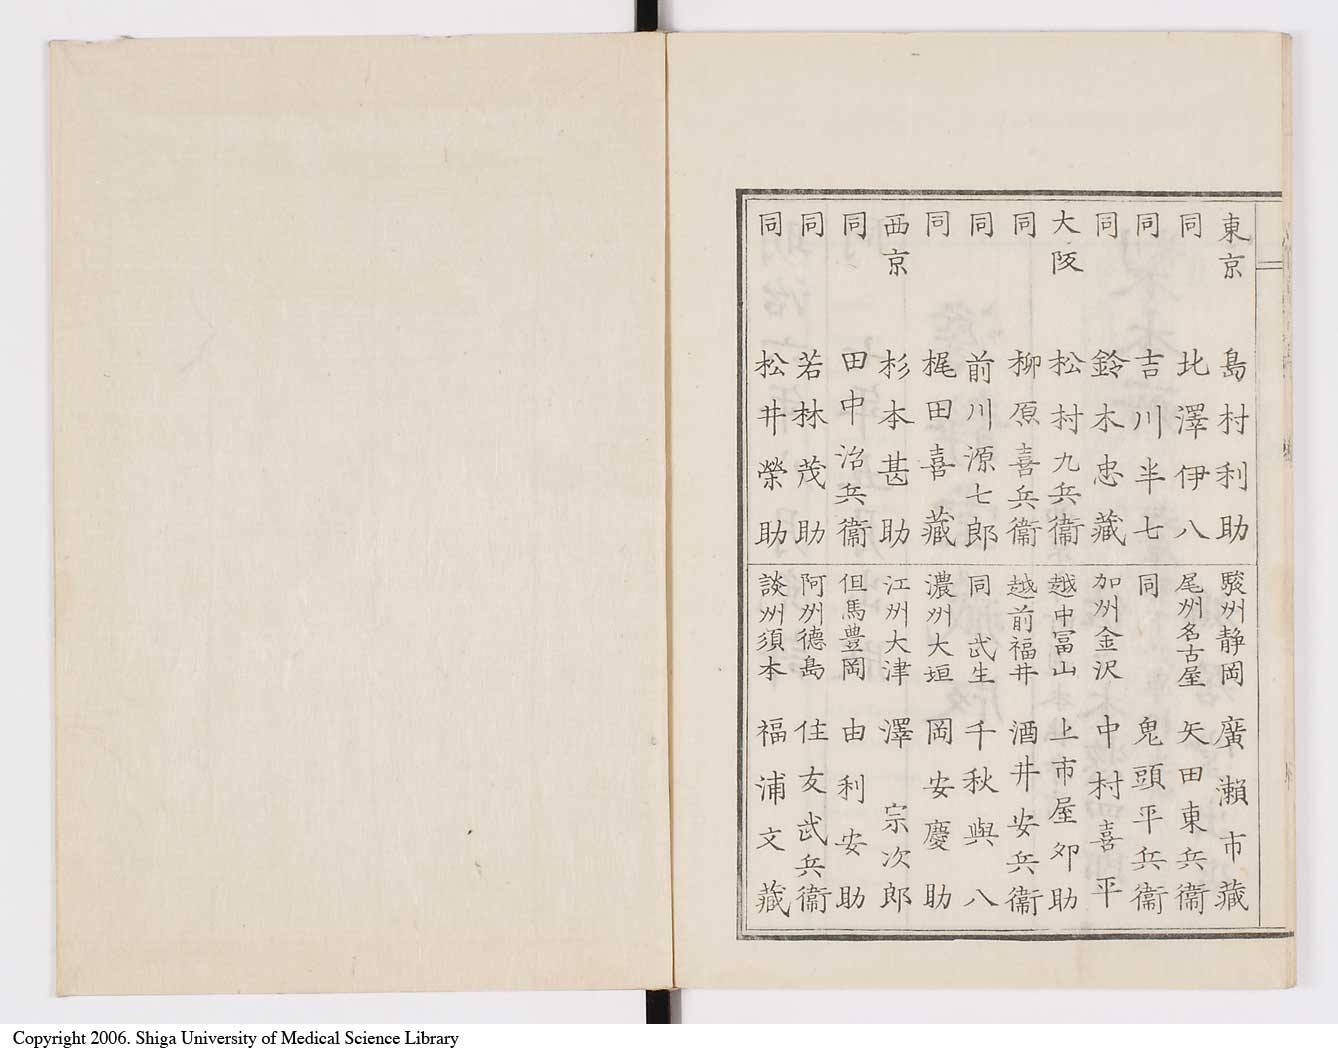 東京 島村利助
同 北澤伊八
同 吉川半七
同 鈴木忠藏
大阪 松村九兵衞
同 柳原喜兵衞
同 前川源七郎
同 梶田喜藏
西京 杉本甚助
同 田中治兵衞
同 若林茂助
同 松井榮助
駿州静岡 廣瀬市藏
尾州名古屋 矢田東兵衞
同 鬼頭平兵衞
加州金沢 中村喜平
越中冨山 上市屋卯助
越前福井 酒井安兵衞
同 武生 千秋與八
濃州大垣 岡安慶助
江州大津 澤宗次郎
但馬豊岡 由利安助
阿州德島 住友武兵衞
談州須本 福浦文藏
Copyright 2006. Shiga University of Medical Science Library